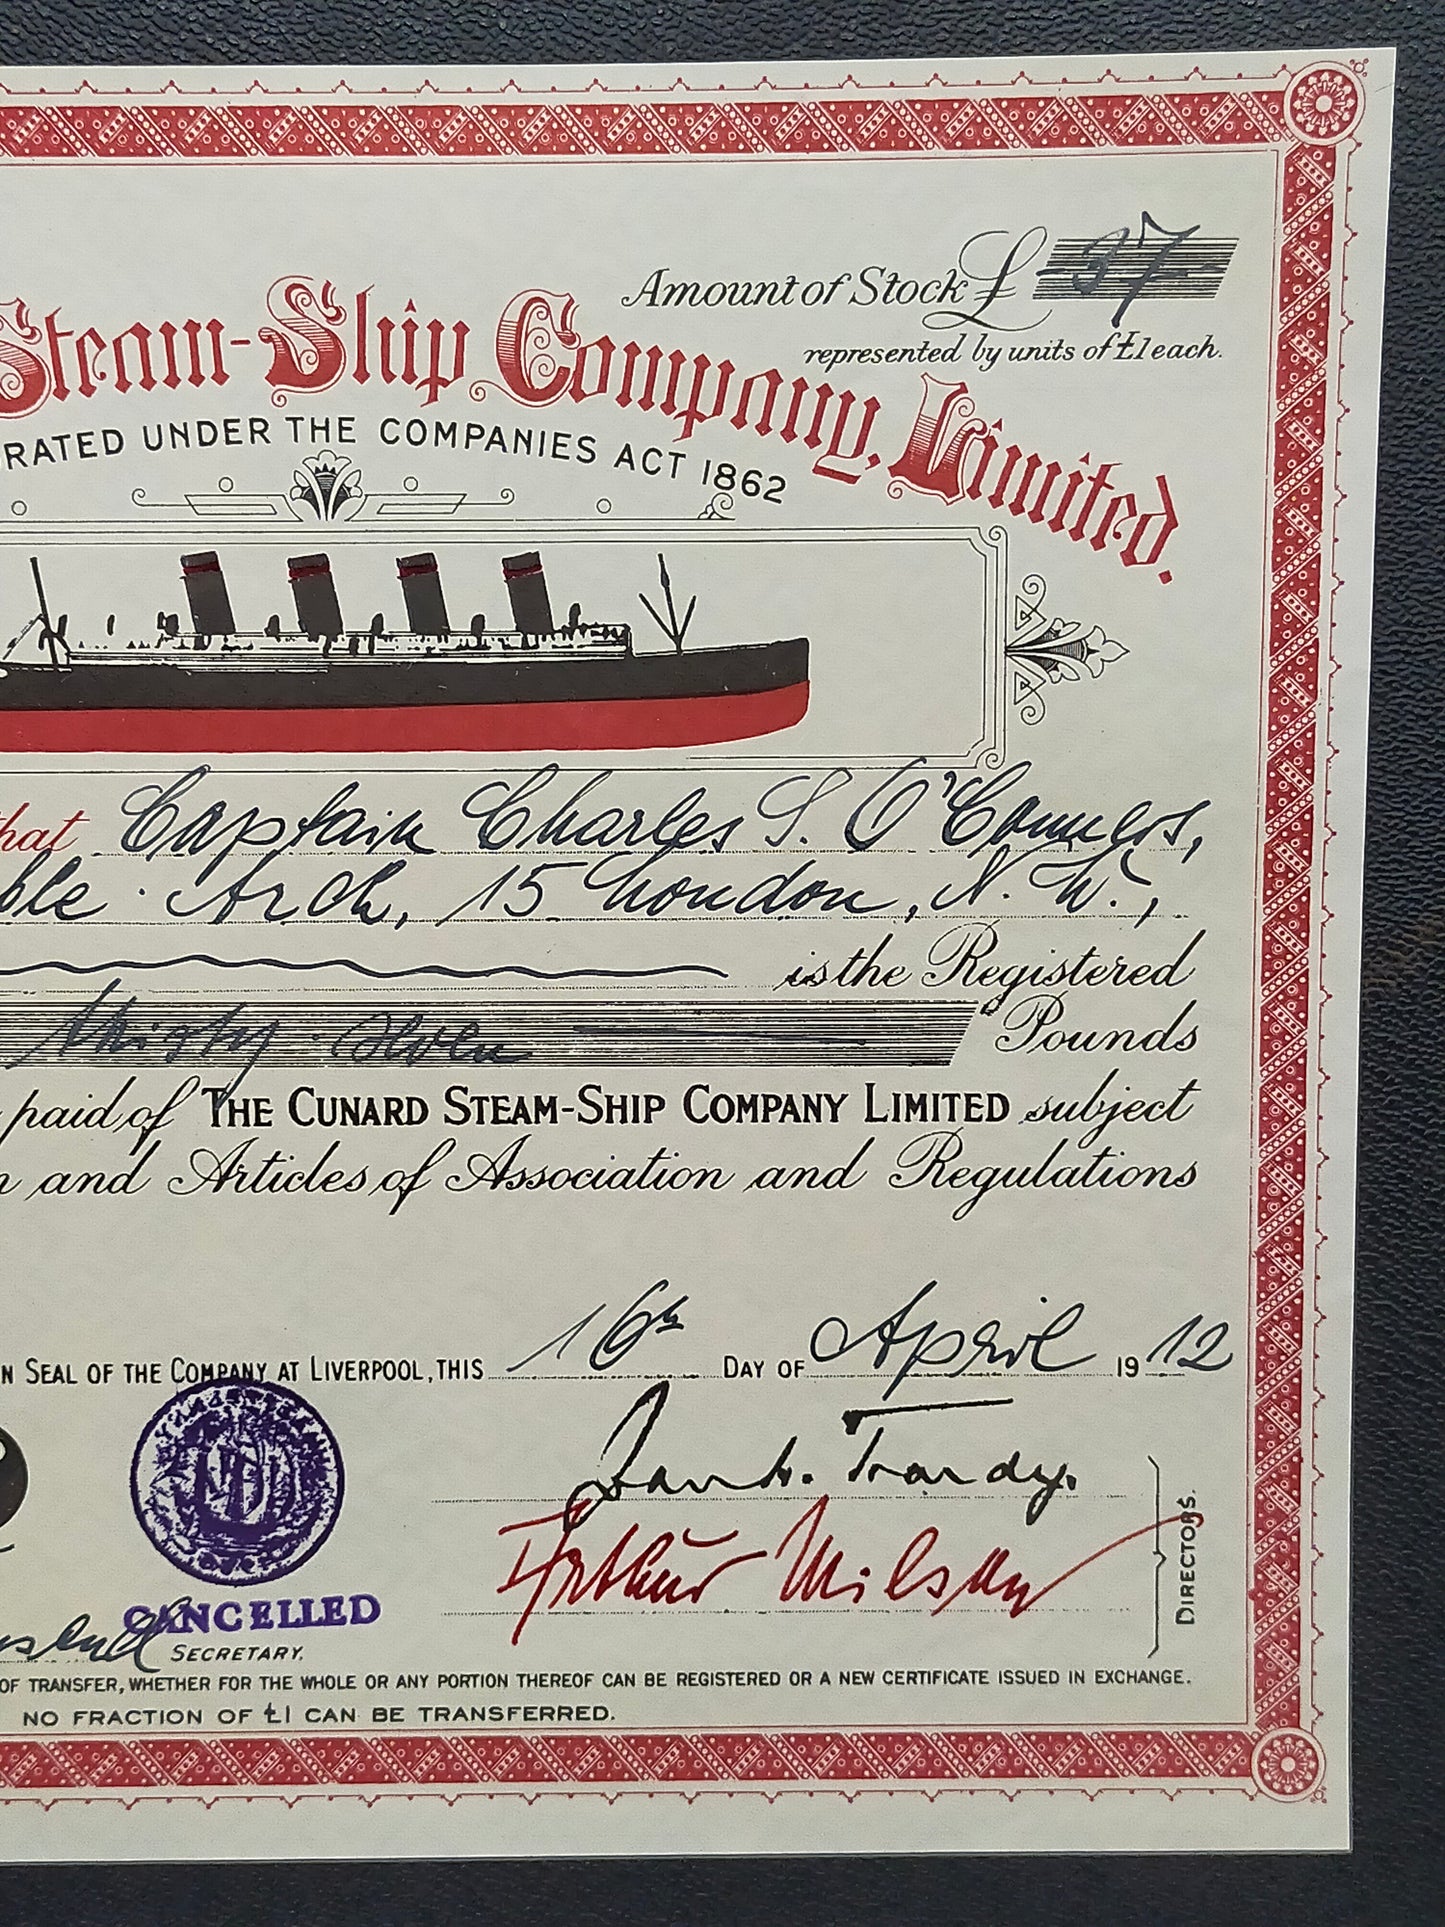 Amount of Stock £ 37
represented by units of £1 each.
Steam-Ship Company, Limited.
RATED UNDER THE COMPANIES ACT 1862
that Captain Charles S. O'Conners,
ble Arch, 15 London, N. W.,
is the Registered
thirty seven Pounds
paid of THE CUNARD STEAM-SHIP COMPANY LIMITED subject
n and Articles of Association and Regulations
N SEAL OF THE COMPANY AT LIVERPOOL, THIS 16th DAY OF April 19 12
Arthur Wilson
DIRECTORS.
CANCELLED
SECRETARY.
OF TRANSFER, WHETHER FOR THE WHOLE OR ANY PORTION THEREOF CAN BE REGISTERED OR A NEW CERTIFICATE ISSUED IN EXCHANGE.
NO FRACTION OF £1 CAN BE TRANSFERRED.